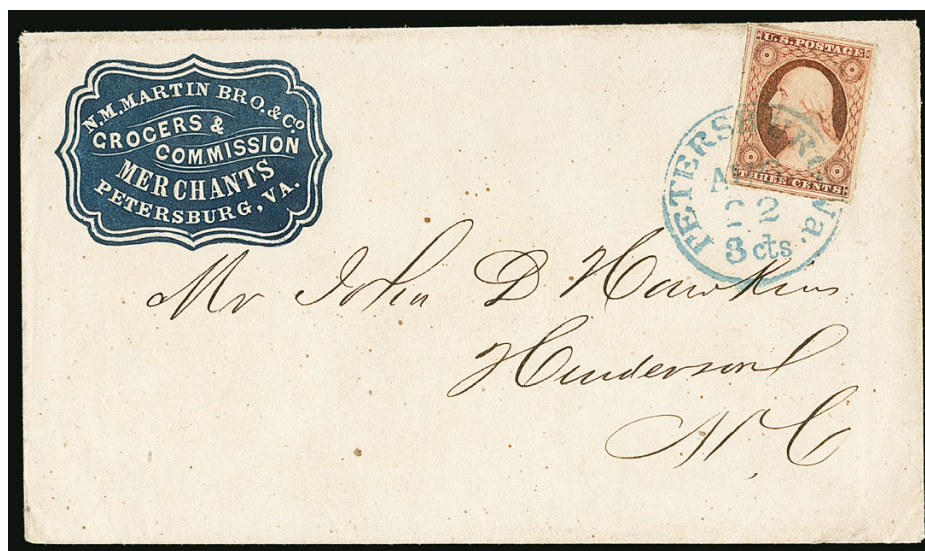 N.M. MARTIN BRO. & Co
GROCERS &
COMMISSION
MERCHANTS
PETERSBURG, VA.
U.S. POSTAGE
THREE CENTS
PETERSBURG Va.
22
3 cts
Mr John D Hawkins
Henderson
N. C